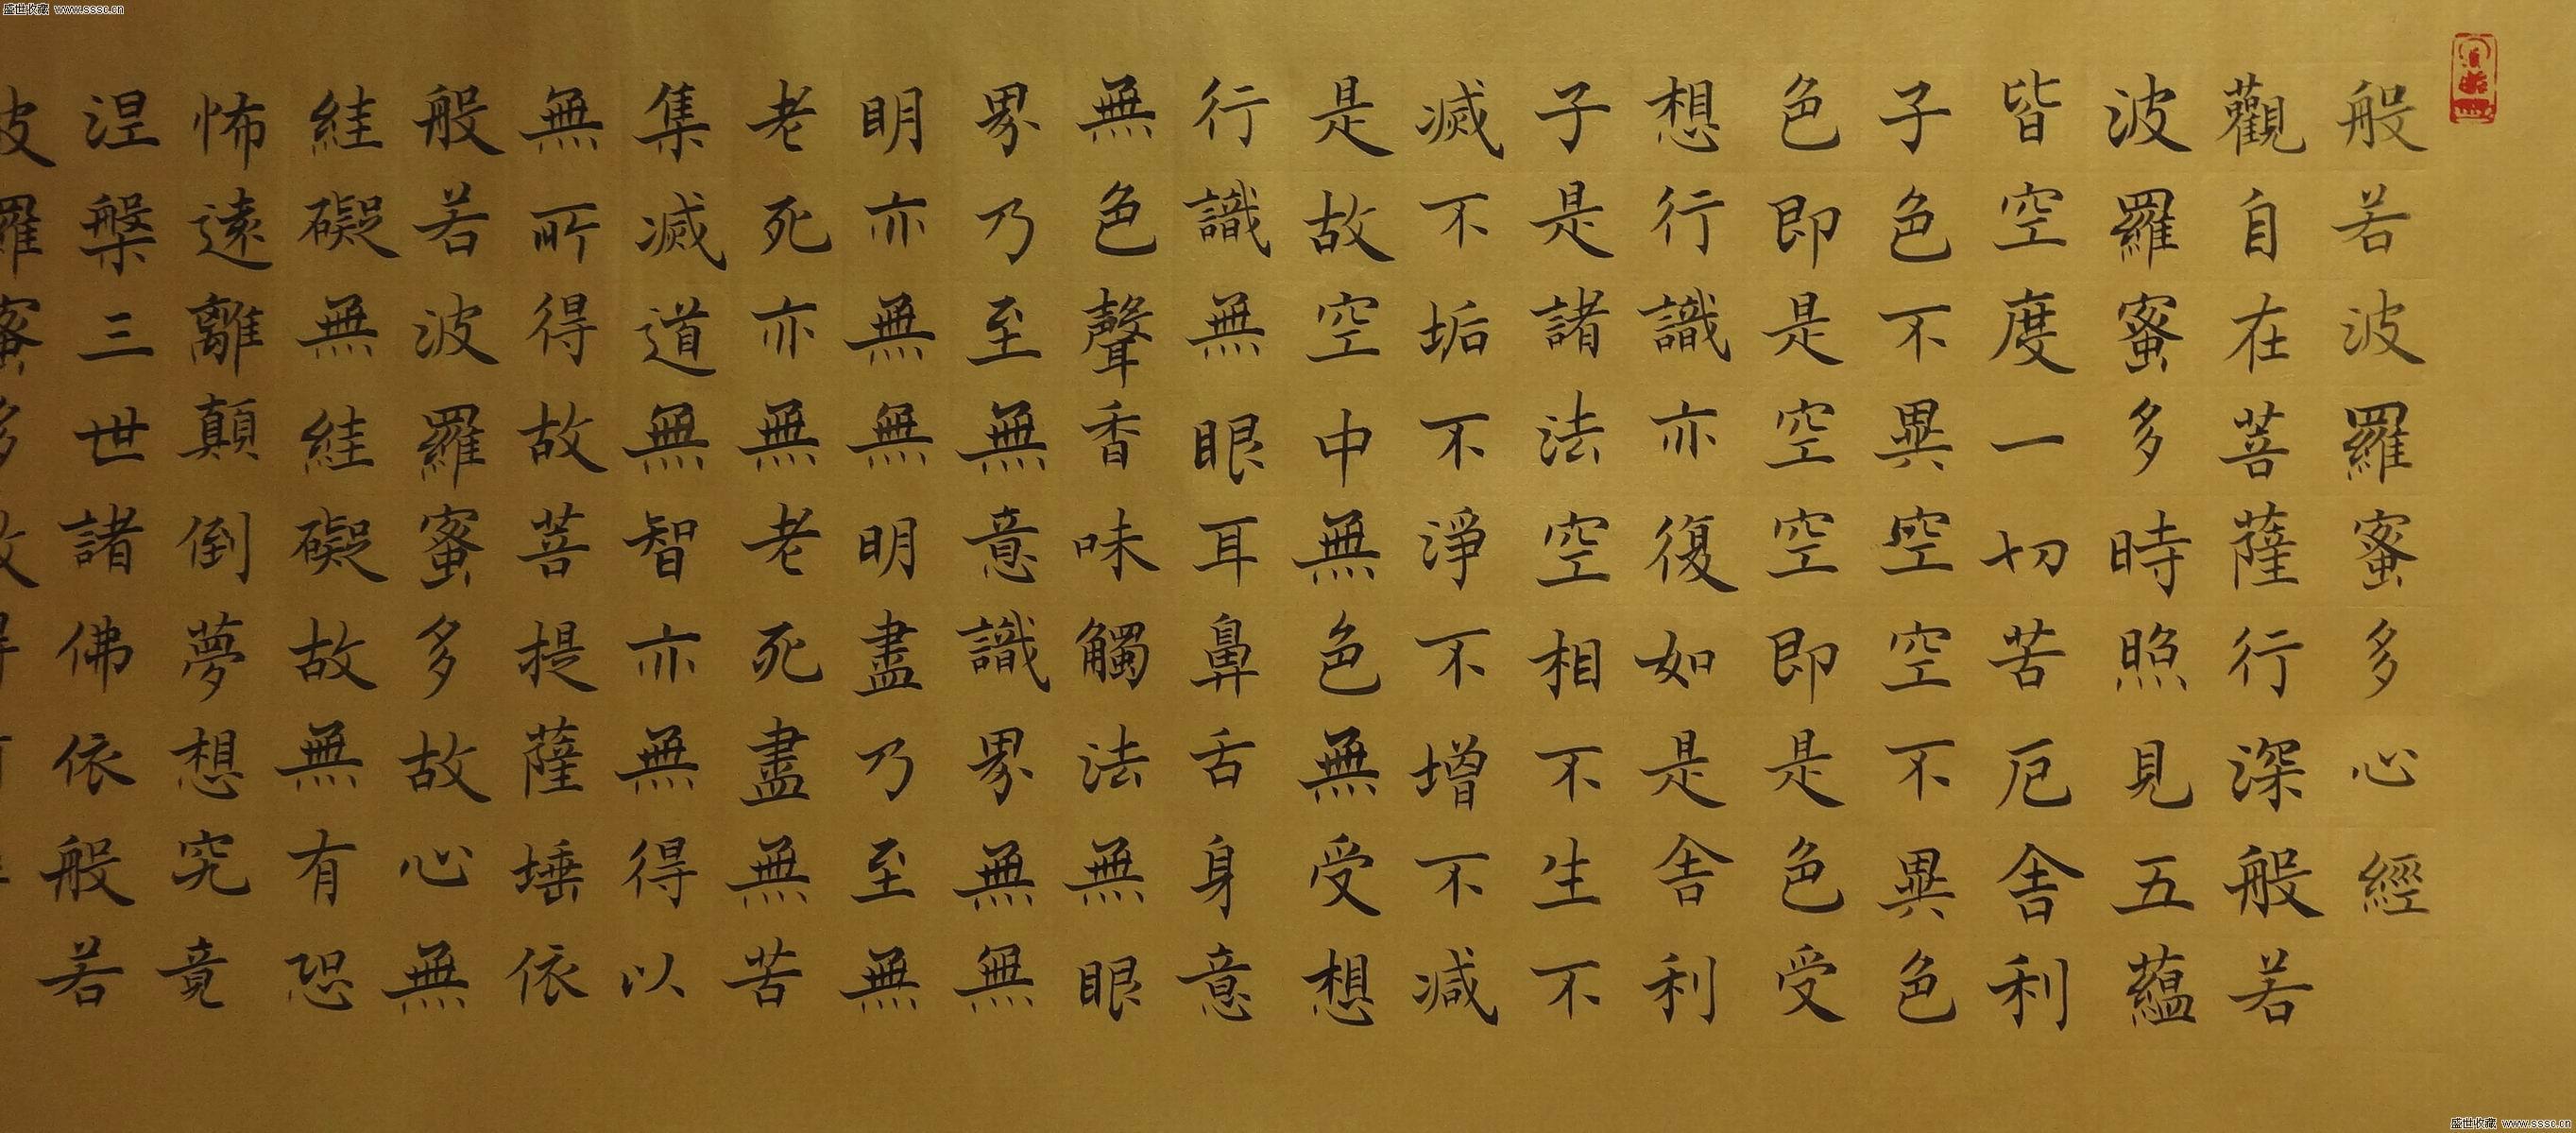 盛世收藏 www.sssc.cn
般若波羅蜜多心經
觀自在菩薩行深般若
波羅蜜多時照見五蘊
皆空度一切苦厄舎利
子色不異空空不異色
色即是空空即是色受
想行識亦復如是舎利
子是諸法空相不生不
滅不垢不淨不增不減
是故空中無色無受想
行識無眼耳鼻舌身意
無色聲香味觸法無眼
界乃至無意識界無無
明亦無無明盡乃至無
老死亦無老死盡無苦
集滅道無智亦無得以
無所得故菩提薩埵依
般若波羅蜜多故心無
絓礙無絓礙故無有恐
怖遠離顛倒夢想究竟
涅槃三世諸佛依般若
波羅蜜多故得
盛世收藏 www.sssc.cn